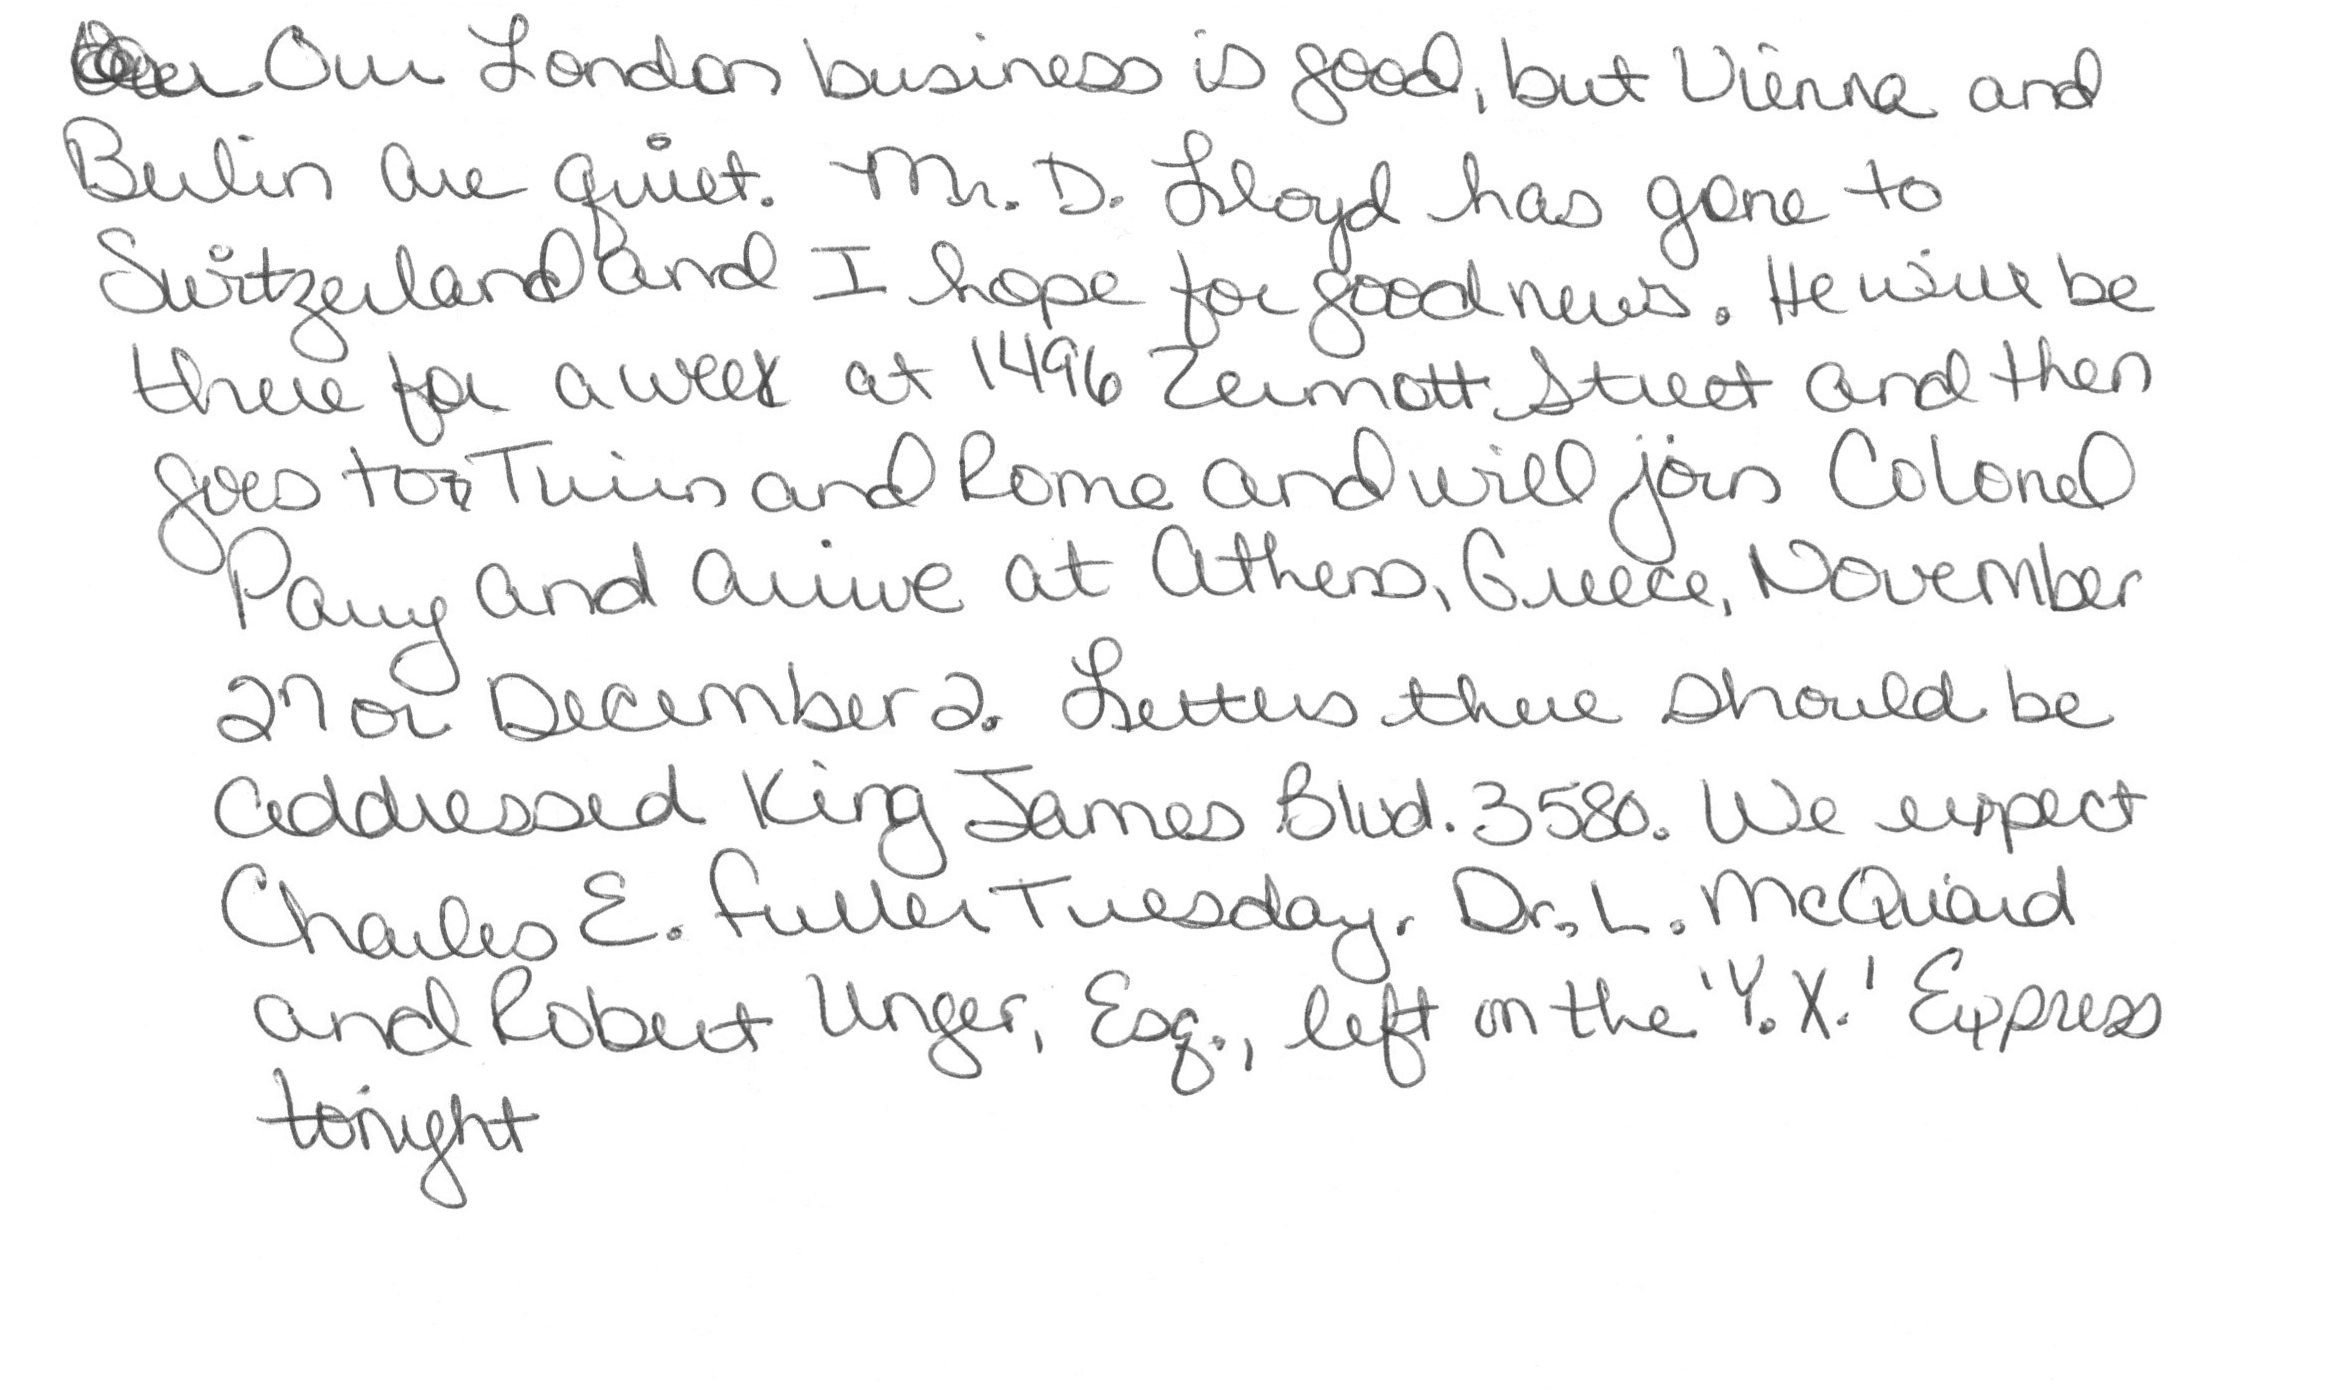 Our London business is good, but Vienna and
Berlin are quiet. Mr. D. Lloyd has gone to
Switzerland and I hope for good news. He will be
there for a week at 1496 Zermott Street and then
goes to Turin and Rome and will join Colonel
Parry and arrive at Athens, Greece, November
27 or December 2. Letters there should be
addressed King James Blvd. 3580. We expect
Charles E. Fuller Tuesday. Dr. L. McQuaid
and Robert Unger, Esq., left on the 'Y.X.' Express
tonight